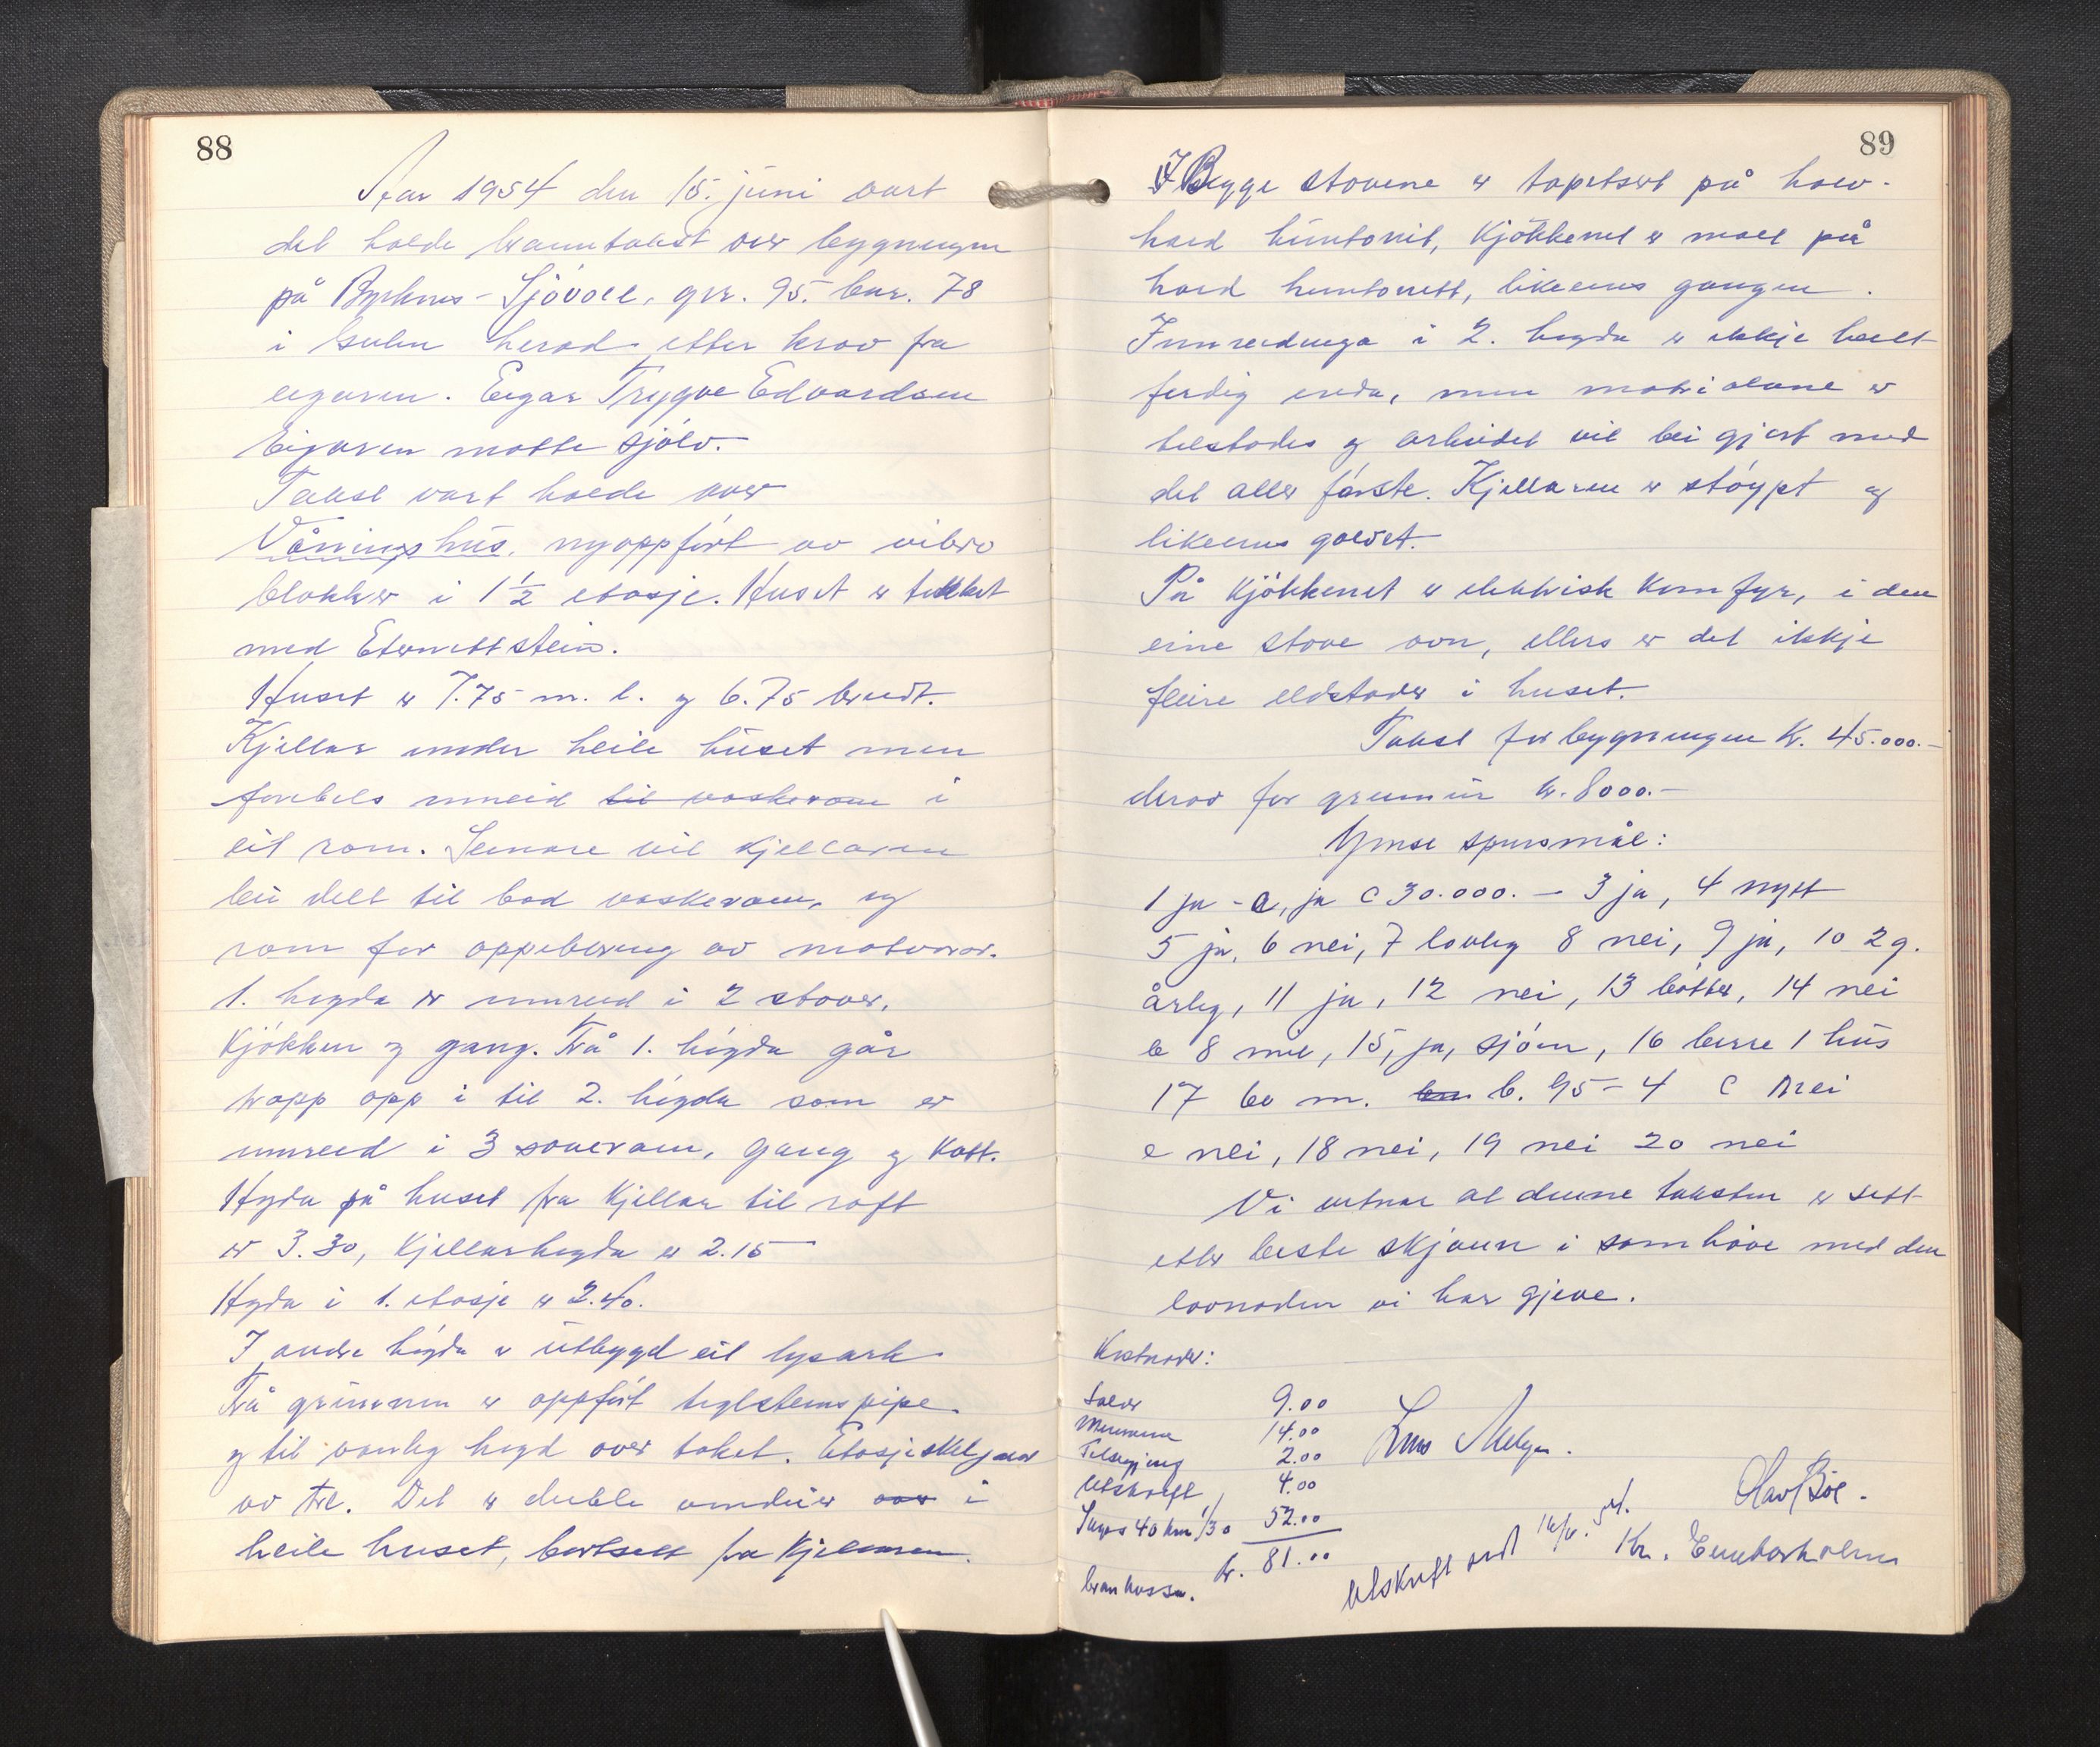 88
Aar 1954 den 15. juni vart
det halde branntakst over bygningen
på Byrknes - Sjövoll, gnr. 95. bnr. 78
i Gulen herad etter krav fra
eigaren. Eigar Trygve Edvardsen
Eigaren møtte sjölv.
Takst vart halde over
Våningshus, nyoppfört av vibro
blokker i 1½ etasje. Huset er tekket
med Eternittstein.
Huset er 7.75 m. l. og 6.75 breidt.
Kjellar under heile huset men
forebels innreid til vaskerom i
eit rom. Seinare vil kjellaren
bli delt til bad vaskerom, og
rom for oppebevring av matvaror.
1. högda er innreid i 2 stover,
Kjökken og gang. Frå 1. högda går
trapp opp i til 2. högda som er
innreid i 3 soverom, gang og kott.
Högda på huset fra kjellar til raft
er 3.30, Kjellarhögda er 2.15
Högda i 1. etasje er 2.40.
I andre högda er utbygd eit lysark
Frå grunnen er oppfört teglsteinspipe
og til vanleg högd over taket. Etasjeskilje
av tre. Det er duble vinduer over i
heile huset, bortsett fra kjellaren.
89
I Begge stovene er tapetsert på halv-
hard huntonit, Kjökkenet er malt på
hard huntonitt, likeeins gangen.
Innreidninga i 2. högda er ikkje heilt
ferdig enda, men materialane er
tilstades og arbeidet vil bli gjort med
det aller förste. Kjellaren er stöypt og
likeeins golvet.
På Kjökkenet er elektrisk Komfyr, i den
eine stove ovn, ellers er det ikkje
fleire eldstader i huset.
Takst for bygningen Kr. 45.000.-
derav for grunnmur kr. 8000.-
Ymse spursmål:
1 ja - a, ja c 30.000. - 3 ja, 4 nytt
5 ja, 6 nei, 7 lovleg 8 nei, 9 ja, 10 2 g.
årleg, 11 ja, 12 nei, 13 bötter, 14 nei
b 8 mil, 15, ja, sjöen, 16 berre 1 hus
17 60 m. b. 95 - 4 c nei
e nei, 18 nei, 19 nei 20 nei
Vi vitnar at denne taksten er sett
etter beste skjönn i samhöve med den
lovnaden vi har gjeve.
Kostnader:
9.00
14.00
Tilsegjing 2.00
Utskrift 4.00
Skyss 40 km 1/30 52.00
kr. 81.00
brankassa.
Olav Böe.
Utskrift sendt 16/6. 54.